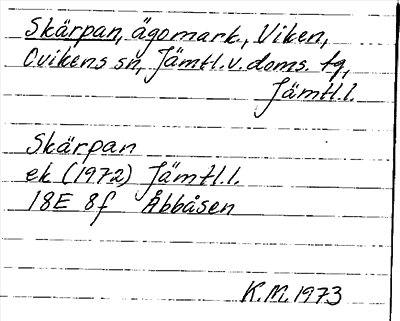 Skärpan, ägomark, Viken,
Ovikens sn, Jämtl.v.doms. tg,
Jämtl.l.
Skärpan
ek (1972) Jämtl.l.
18E 8f Åbbåsen
K.M. 1973